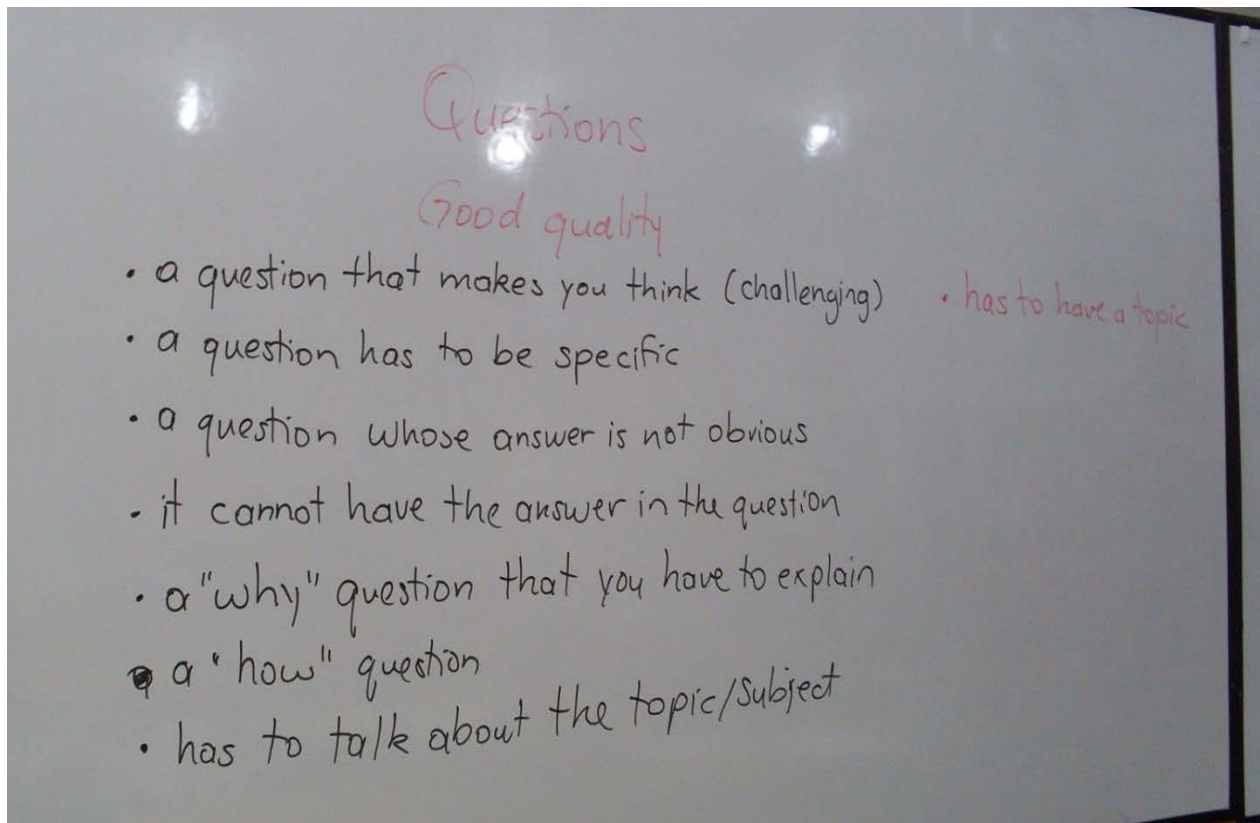 Questions
Good quality
• a question that makes you think (challenging)
• has to have a topic
• a question has to be specific
• a question whose answer is not obvious
• it cannot have the answer in the question
• a "why" question that you have to explain
• a "how" question
• has to talk about the topic/subject